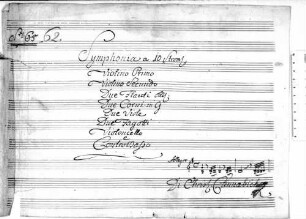 62.
Symphonia a 10 Strom:
Violino Primo
Violino Secundo
Due Flauti
Due Corni in G
Due Viole
Due Fagotti
Violoncello
e
Contrabasso
Allegro
Di Christ: Cannabich